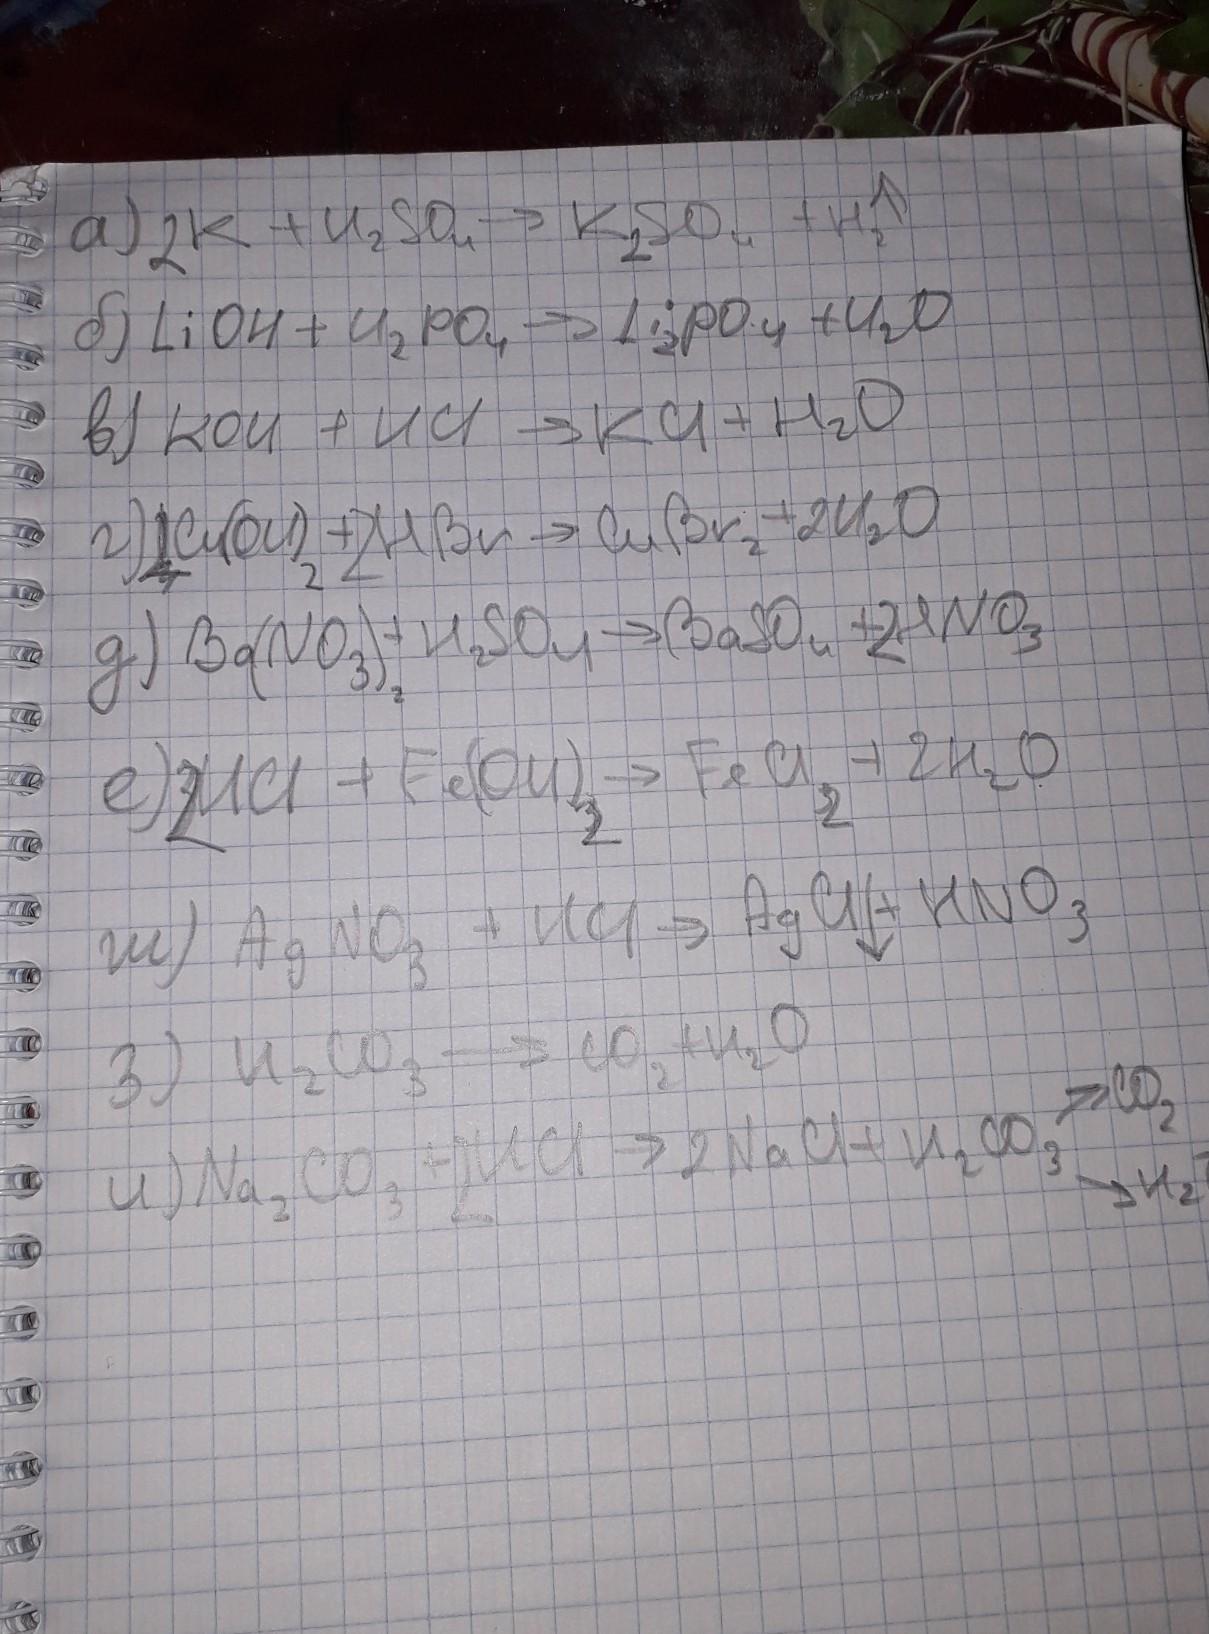 а) 2K + H₂SO₄ → K₂SO₄ + H₂↑
б) LiOH + H₂PO₄ → Li₃PO₄ + H₂O
в) KOH + HCl → KCl + H₂O
г) 1Cu(OH)₂ + 2HBr → CuBr₂ + 2H₂O
д) Ba(NO₃)₂ + H₂SO₄ → BaSO₄ + 2HNO₃
е) 2HCl + Fe(OH)₂ → FeCl₂ + 2H₂O
ж) AgNO₃ + HCl → AgCl↓ + HNO₃
з) H₂CO₃ → CO₂ + H₂O
и) Na₂CO₃ + 2HCl → 2NaCl + H₂CO₃ → CO₂
→ H₂